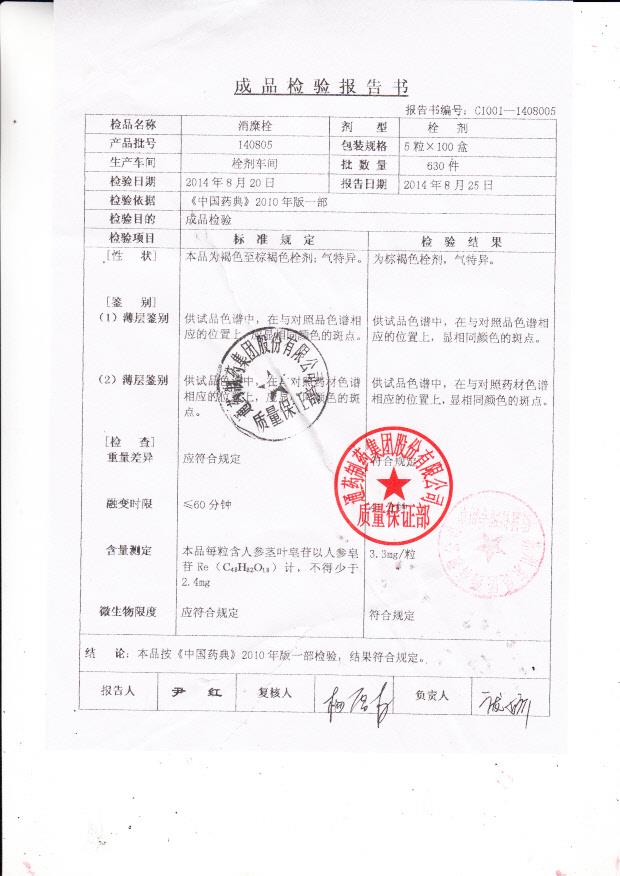 成品检验报告书
报告书编号：C1001—1408005
检品名称 消糜栓 剂型 栓剂
产品批号 140805 包装规格 5粒×100盒
生产车间 栓剂车间 批数量 630件
检验日期 2014年8月20日 报告日期 2014年8月25日
检验依据 《中国药典》2010年版一部
检验目的 成品检验
检验项目 标准规定 检验结果
［性 状］ 本品为褐色至棕褐色栓剂；气特异。 为棕褐色栓剂，气特异。
［鉴 别］
（1）薄层鉴别 供试品色谱中，在与对照品色谱相 供试品色谱中，在与对照品色谱相
应的位置上，显相同颜色的斑点。 应的位置上，显相同颜色的斑点。
（2）薄层鉴别 供试品色谱中，在与对照药材色谱 供试品色谱中，在与对照药材色谱
相应的位置上，颜色的斑 相应的位置上，显相同颜色的斑点。
点。
［检 查］
重量差异 应符合规定 符合规定
融变时限 ≤60分钟
含量测定 本品每粒含人参茎叶皂苷以人参皂 3.3mg/粒
苷 Re（C₄₈H₈₂O₁₈）计，不得少于
2.4mg
微生物限度 应符合规定 符合规定
通药制药集团股份有限公司
质量保证部
通药制药集团股份有限公司
质量保证部
结 论：本品按《中国药典》2010年版一部检验，结果符合规定。
报告人 尹红 复核人 负责人